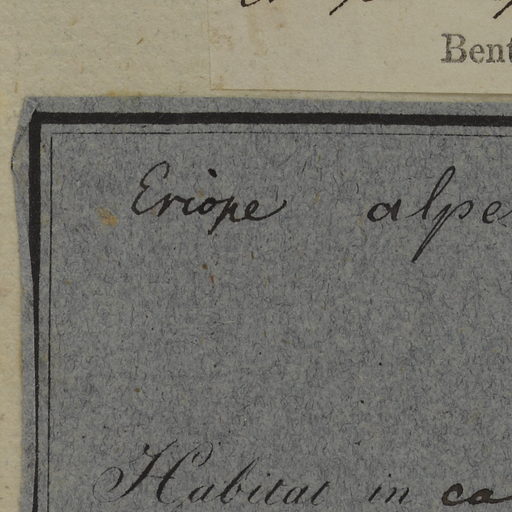 Bent
Eriope alpe
Habitat in ca